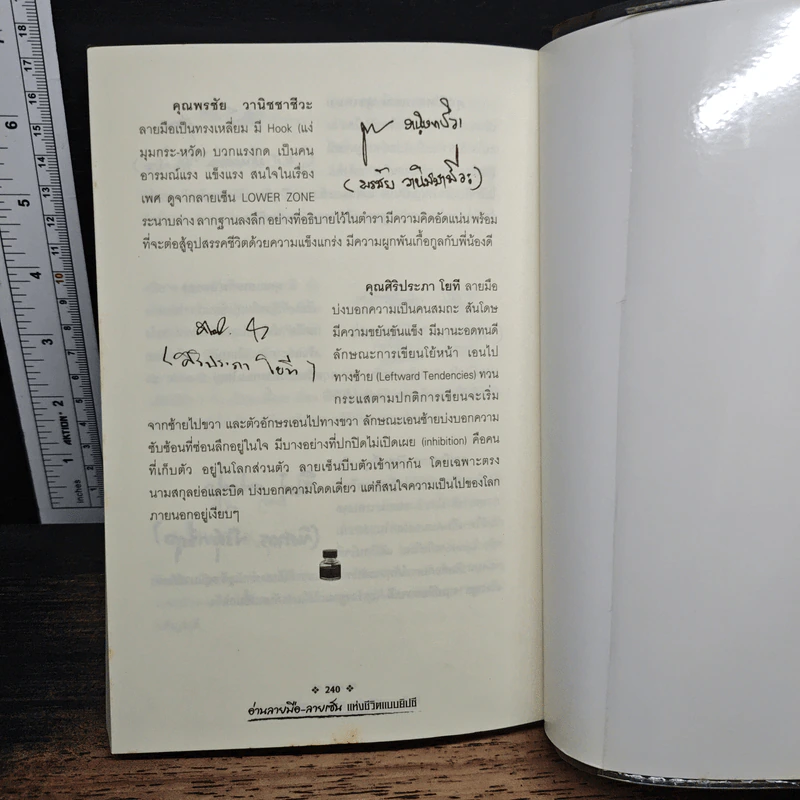 คุณพรชัย วานิชชาชีวะ
ลายมือเป็นทรงเหลี่ยม มี Hook (แง่
มุมกระ-หวัด) บวกแรงกด เป็นคน
อารมณ์แรง แข็งแรง สนใจในเรื่อง
เพศ ดูจากลายเซ็น LOWER ZONE
ระนาบล่าง ลากฐานลงลึก อย่างที่อธิบายไว้ในตำรา มีความคิดอัดแน่น พร้อม
ที่จะต่อสู้อุปสรรคชีวิตด้วยความแข็งแกร่ง มีความผูกพันเกื้อกูลกับพี่น้องดี
(พรชัย วานิชชาชีวะ)
คุณศิริประภา โยที ลายมือ
บ่งบอกความเป็นคนสมถะ สันโดษ
มีความขยันขันแข็ง มีมานะอดทนดี
ลักษณะการเขียนโย้หน้า เอนไป
ทางซ้าย (Leftward Tendencies) ทวน
กระแสตามปกติการเขียนจะเริ่ม
จากซ้ายไปขวา และตัวอักษรเอนไปทางขวา ลักษณะเอนซ้ายบ่งบอกความ
ซับซ้อนที่ซ่อนลึกอยู่ในใจ มีบางอย่างที่ปกปิดไม่เปิดเผย (inhibition) คือคน
ที่เก็บตัว อยู่ในโลกส่วนตัว ลายเซ็นบีบตัวเข้าหากัน โดยเฉพาะตรง
นามสกุลย่อและบิด บ่งบอกความโดดเดี่ยว แต่ก็สนใจความเป็นไปของโลก
ภายนอกอยู่เงียบๆ
(ศิริประภา โยที)
240
อ่านลายมือ-ลายเซ็น แห่งชีวิตแบบยิปซี